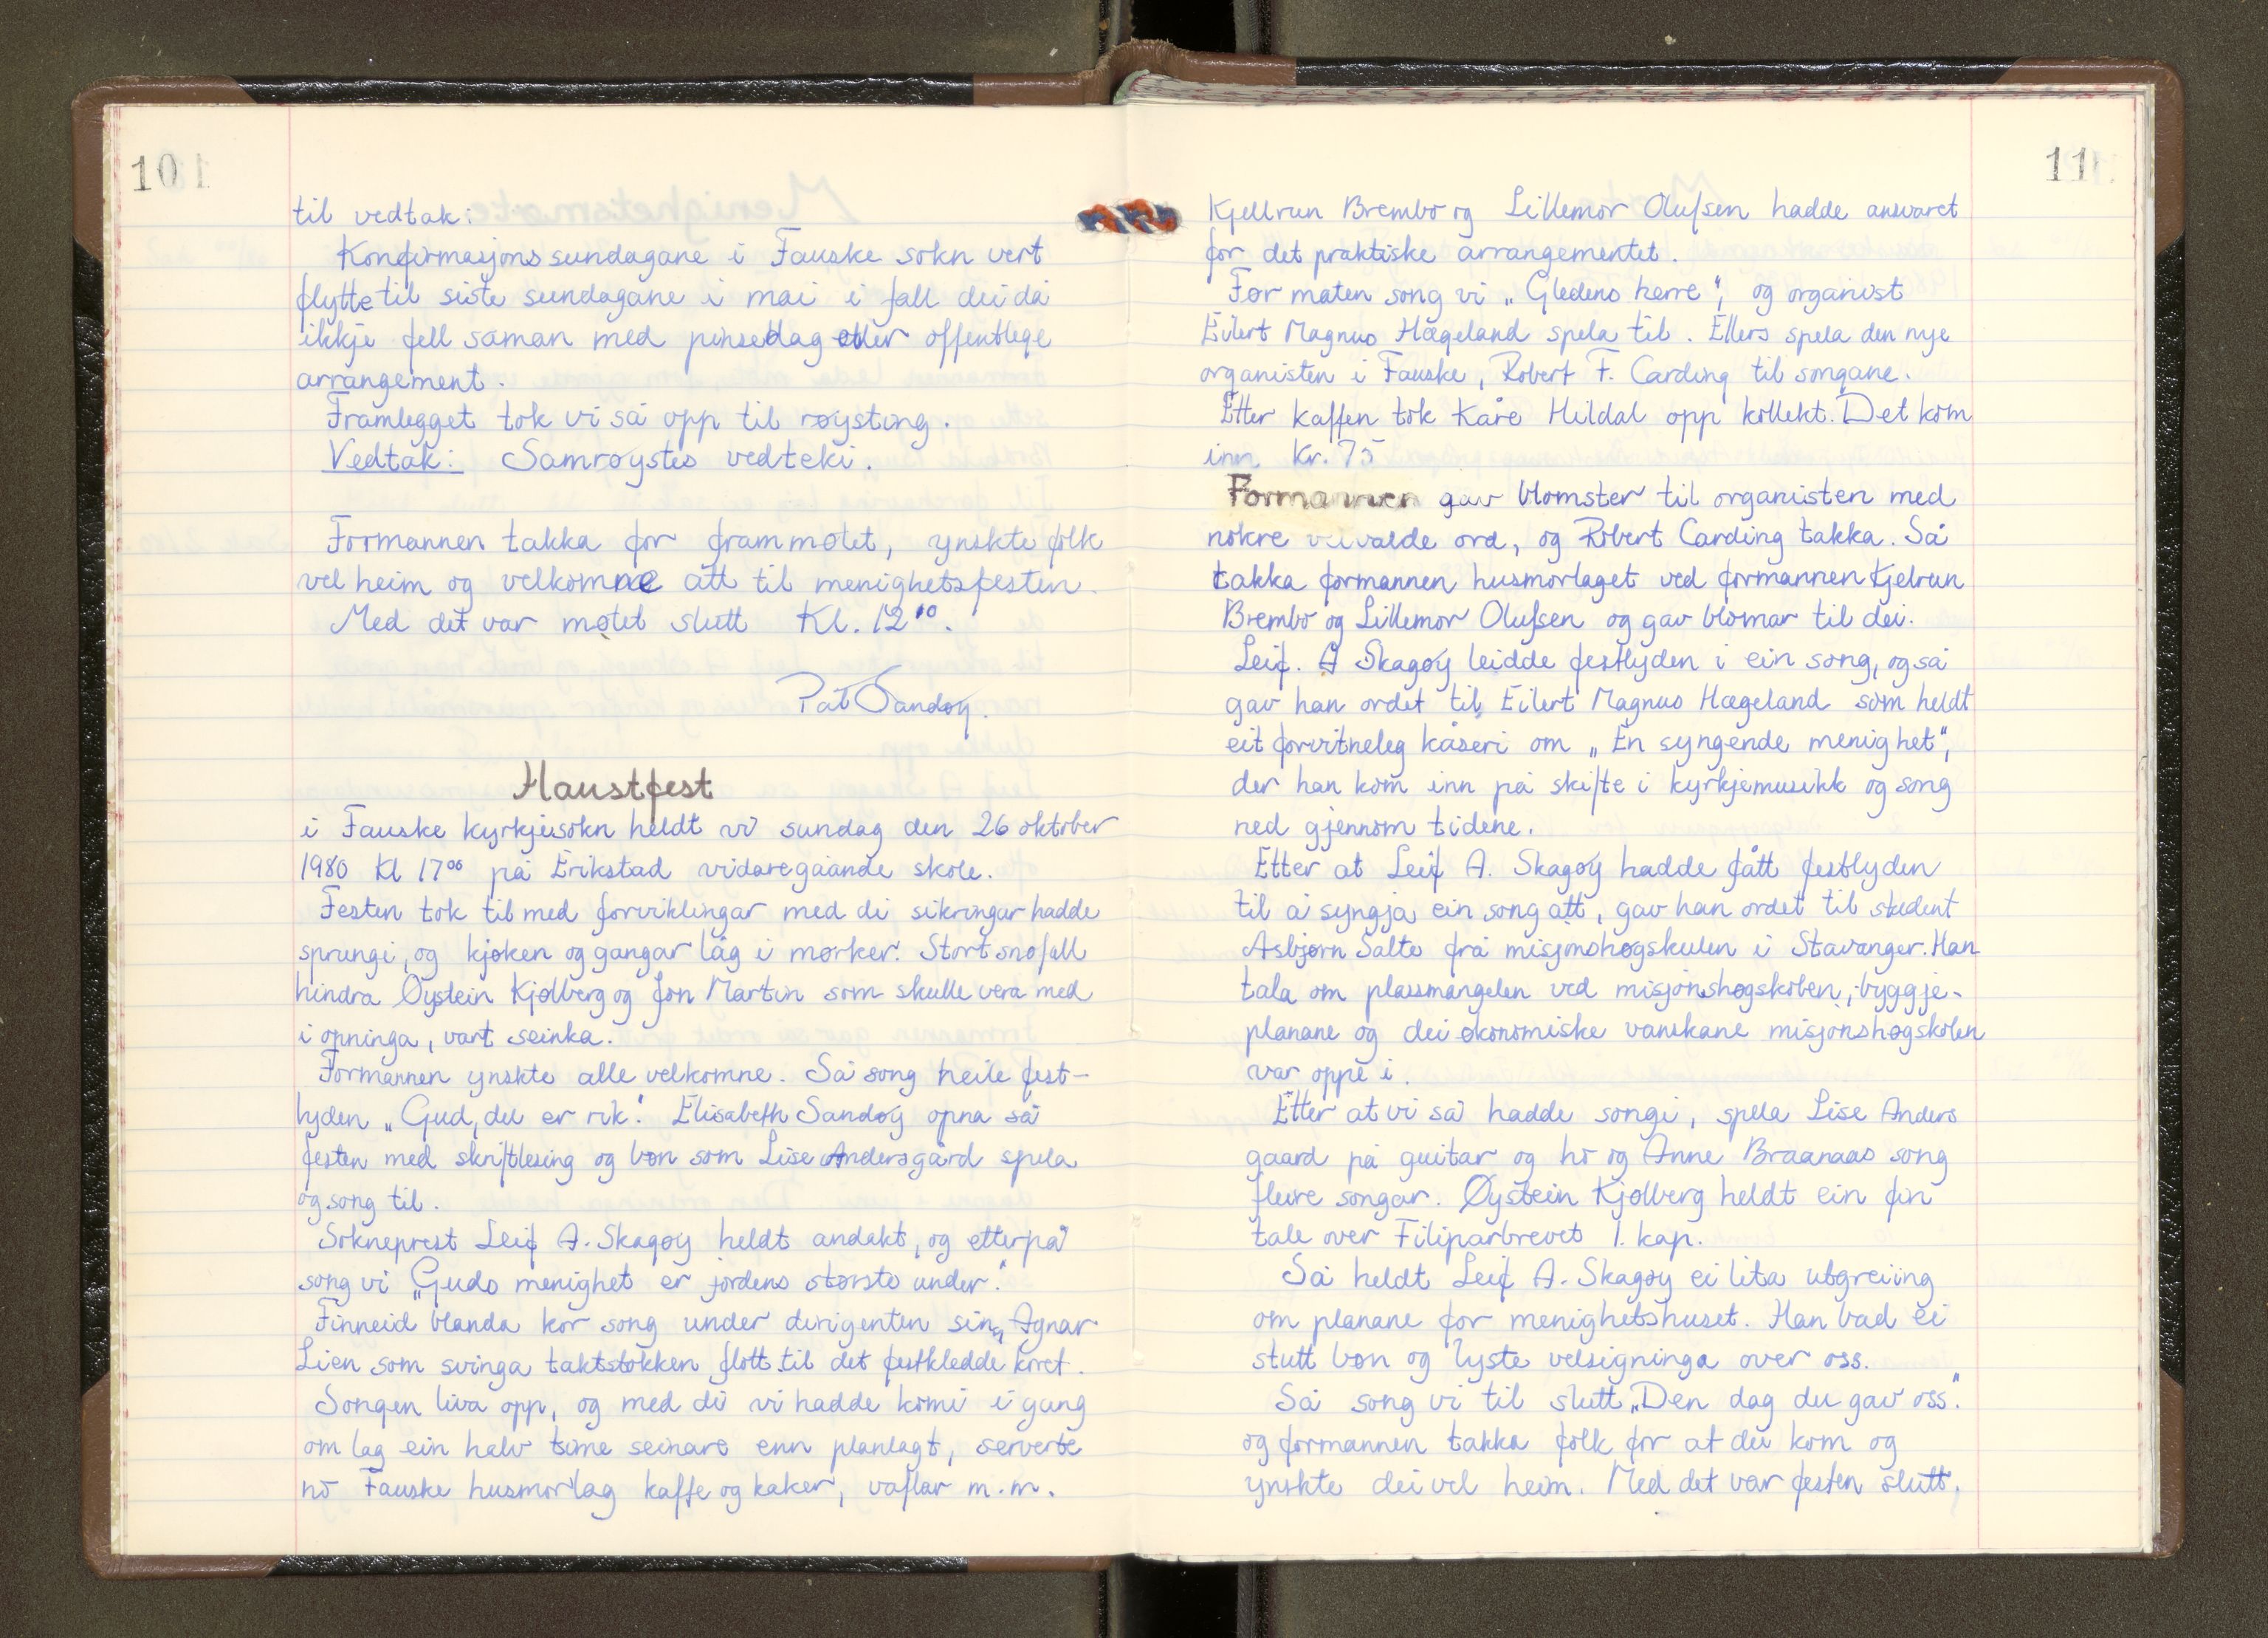 10
til vedtak:
Konfirmasjonssundagane i Fauske sokn vert
flytte til siste sundagane i mai i fall dei då
ikkje fell saman med pinsedag eller offentlege
arrangement.
Framlegget tok vi så opp til røysting.
Vedtak: Samrøystes vedteki.
Formannen takka for frammøtet, ynskte folk
vel heim og velkomne att til menighetsfesten.
Med det var møtet slutt Kl. 12¹⁰.
Pat Sandøy.
Haustfest
i Fauske kyrkjesokn heldt vi sundag den 26 oktober
1980 Kl 17⁰⁰ på Erikstad vidaregåande skole.
Festen tok til med forviklingar med di sikringar hadde
sprungi, og kjøken og gangar låg i mørker. Stort snøfall
hindra Øystein Kjølberg og Jon Martin som skulle vera med
i opninga, vart seinka.
Formannen ynskte alle velkomne. Så song heile fest-
lyden „Gud, du er rik". Elisabeth Sandøy opna så
festen med skriftlesing og bøn som Lise Andersgård spela
og song til.
Sokneprest Leif A. Skagøy heldt andakt, og etterpå
song vi „Guds menighet er jordens største under".
Finneid blanda kor song under dirigenten sin, Agnar
Lien som svinga taktstokken flott til det festkledde koret.
Songen liva opp, og med di vi hadde komi i gang
om lag ein halv time seinare enn planlagt, serverte
no Fauske husmorlag kaffe og kaker, vaflar m.m.
11
Kjellrun Brembo og Lillemor Olufsen hadde ansvaret
for det praktiske arrangementet.
Før maten song vi „Gledens herre", og organist
Eilert Magnus Hægeland spela til. Ellers spela den nye
organisten i Fauske, Robert F. Carding til songane.
Etter kaffen tok Kåre Hildal opp kollekt. Det kom
inn Kr. 75
Formannen gav blomster til organisten med
nokre velvalde ord, og Robert Carding takka. Så
takka formannen husmorlaget ved formannen Kjelrun
Brembo og Lillemor Olufsen og gav blomar til dei.
Leif. A Skagøy leidde festlyden i ein song, og så
gav han ordet til Eilert Magnus Hægeland som heldt
eit forvitneleg kåseri om „En syngende menighet",
der han kom inn på skifte i kyrkjemusikk og song
ned gjennom tidene.
Etter at Leif A. Skagøy hadde fått festlyden
til å syngja ein song att, gav han ordet til student
Asbjørn Salte frå misjonshøgskulen i Stavanger. Han
tala om plassmangelen ved misjonshøgskolen, byggje-
planane og dei økonomiske vanskane misjonshøgskolen
var oppe i.
Etter at vi så hadde songi, spela Lise Anders
gaard på guitar og ho og Anne Braanaas song
fleire songar. Øystein Kjølberg heldt ein fin
tale over Filiparbrevet 1. kap.
Så heldt Leif A. Skagøy ei lita utgreiing
om planane for menighetshuset. Han bad ei
stutt bøn og lyste velsigninga over oss.
Så song vi til slutt „Den dag du gav oss".
og formannen takka folk for at dei kom og
ynskte dei vel heim. Med det var festen slutt.